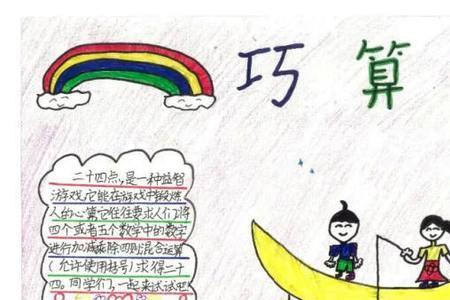 巧算
二十四点,是一种益智
游戏,它能在游戏中锻炼
人的心算,它往往要求人们将
四个或者五个数字中的数字
进行加减乘除四则混合运算
(允许使用括号)求得二十
四。同学们,一起来试试吧!